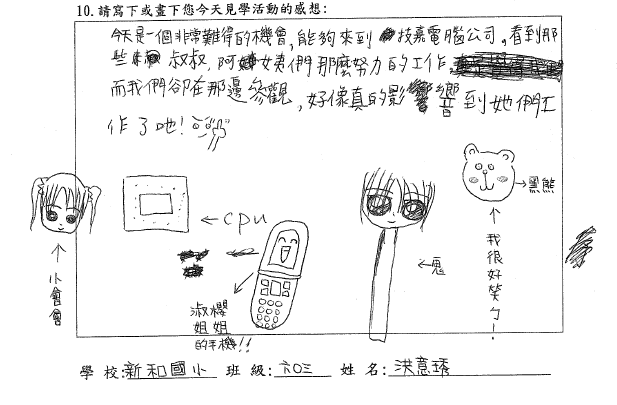 10.請寫下或畫下您今天見學活動的感想:
今天是一個非常難得的機會,能夠來到技嘉電腦公司,看到那
些叔叔,阿姨們那麼努力的工作
而我們卻在那邊參觀,好像真的影響到她們工
作了吔!
黑熊
←cpu
←鬼
我很好笑ㄅ!
小會會
淑櫻
姐姐
的手機!!
學校:新和國小 班級:六03 姓名:洪意琇